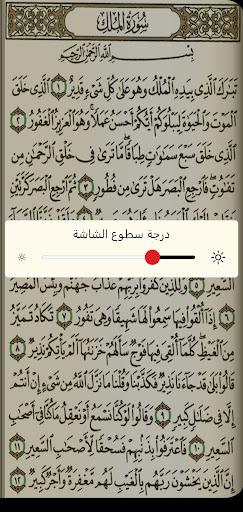 سُورَةُ الْمُلْكِ
بِسْمِ اللَّهِ الرَّحْمَٰنِ الرَّحِيمِ
تَبَٰرَكَ ٱلَّذِى بِيَدِهِ ٱلْمُلْكُ وَهُوَ عَلَىٰ كُلِّ شَىْءٍ قَدِيرٌ ١ ٱلَّذِى خَلَقَ
ٱلْمَوْتَ وَٱلْحَيَوٰةَ لِيَبْلُوَكُمْ أَيُّكُمْ أَحْسَنُ عَمَلًا وَهُوَ ٱلْعَزِيزُ ٱلْغَفُورُ ٢
ٱلَّذِى خَلَقَ سَبْعَ سَمَٰوَٰتٍ طِبَاقًا مَّا تَرَىٰ فِى خَلْقِ ٱلرَّحْمَٰنِ مِن
تَفَٰوُتٍ فَٱرْجِعِ ٱلْبَصَرَ هَلْ تَرَىٰ مِن فُطُورٍ ٣ ثُمَّ ٱرْجِعِ ٱلْبَصَرَ كَرَّتَيْنِ
درجة سطوع الشاشة
ٱلسَّعِيرِ ٥ وَلِلَّذِينَ كَفَرُوا۟ بِرَبِّهِمْ عَذَابُ جَهَنَّمَ وَبِئْسَ ٱلْمَصِيرُ
٦ إِذَآ أُلْقُوا۟ فِيهَا سَمِعُوا۟ لَهَا شَهِيقًا وَهِىَ تَفُورُ ٧ تَكَادُ تَمَيَّزُ
مِنَ ٱلْغَيْظِ كُلَّمَآ أُلْقِىَ فِيهَا فَوْجٌ سَأَلَهُمْ خَزَنَتُهَآ أَلَمْ يَأْتِكُمْ نَذِيرٌ ٨
قَالُوا۟ بَلَىٰ قَدْ جَآءَنَا نَذِيرٌ فَكَذَّبْنَا وَقُلْنَا مَا نَزَّلَ ٱللَّهُ مِن شَىْءٍ إِنْ أَنتُمْ
إِلَّا فِى ضَلَٰلٍ كَبِيرٍ ٩ وَقَالُوا۟ لَوْ كُنَّا نَسْمَعُ أَوْ نَعْقِلُ مَا كُنَّا فِىٓ أَصْحَٰبِ
ٱلسَّعِيرِ ١٠ فَٱعْتَرَفُوا۟ بِذَنۢبِهِمْ فَسُحْقًا لِّأَصْحَٰبِ ٱلسَّعِيرِ ١١
إِنَّ ٱلَّذِينَ يَخْشَوْنَ رَبَّهُم بِٱلْغَيْبِ لَهُم مَّغْفِرَةٌ وَأَجْرٌ كَبِيرٌ ١٢